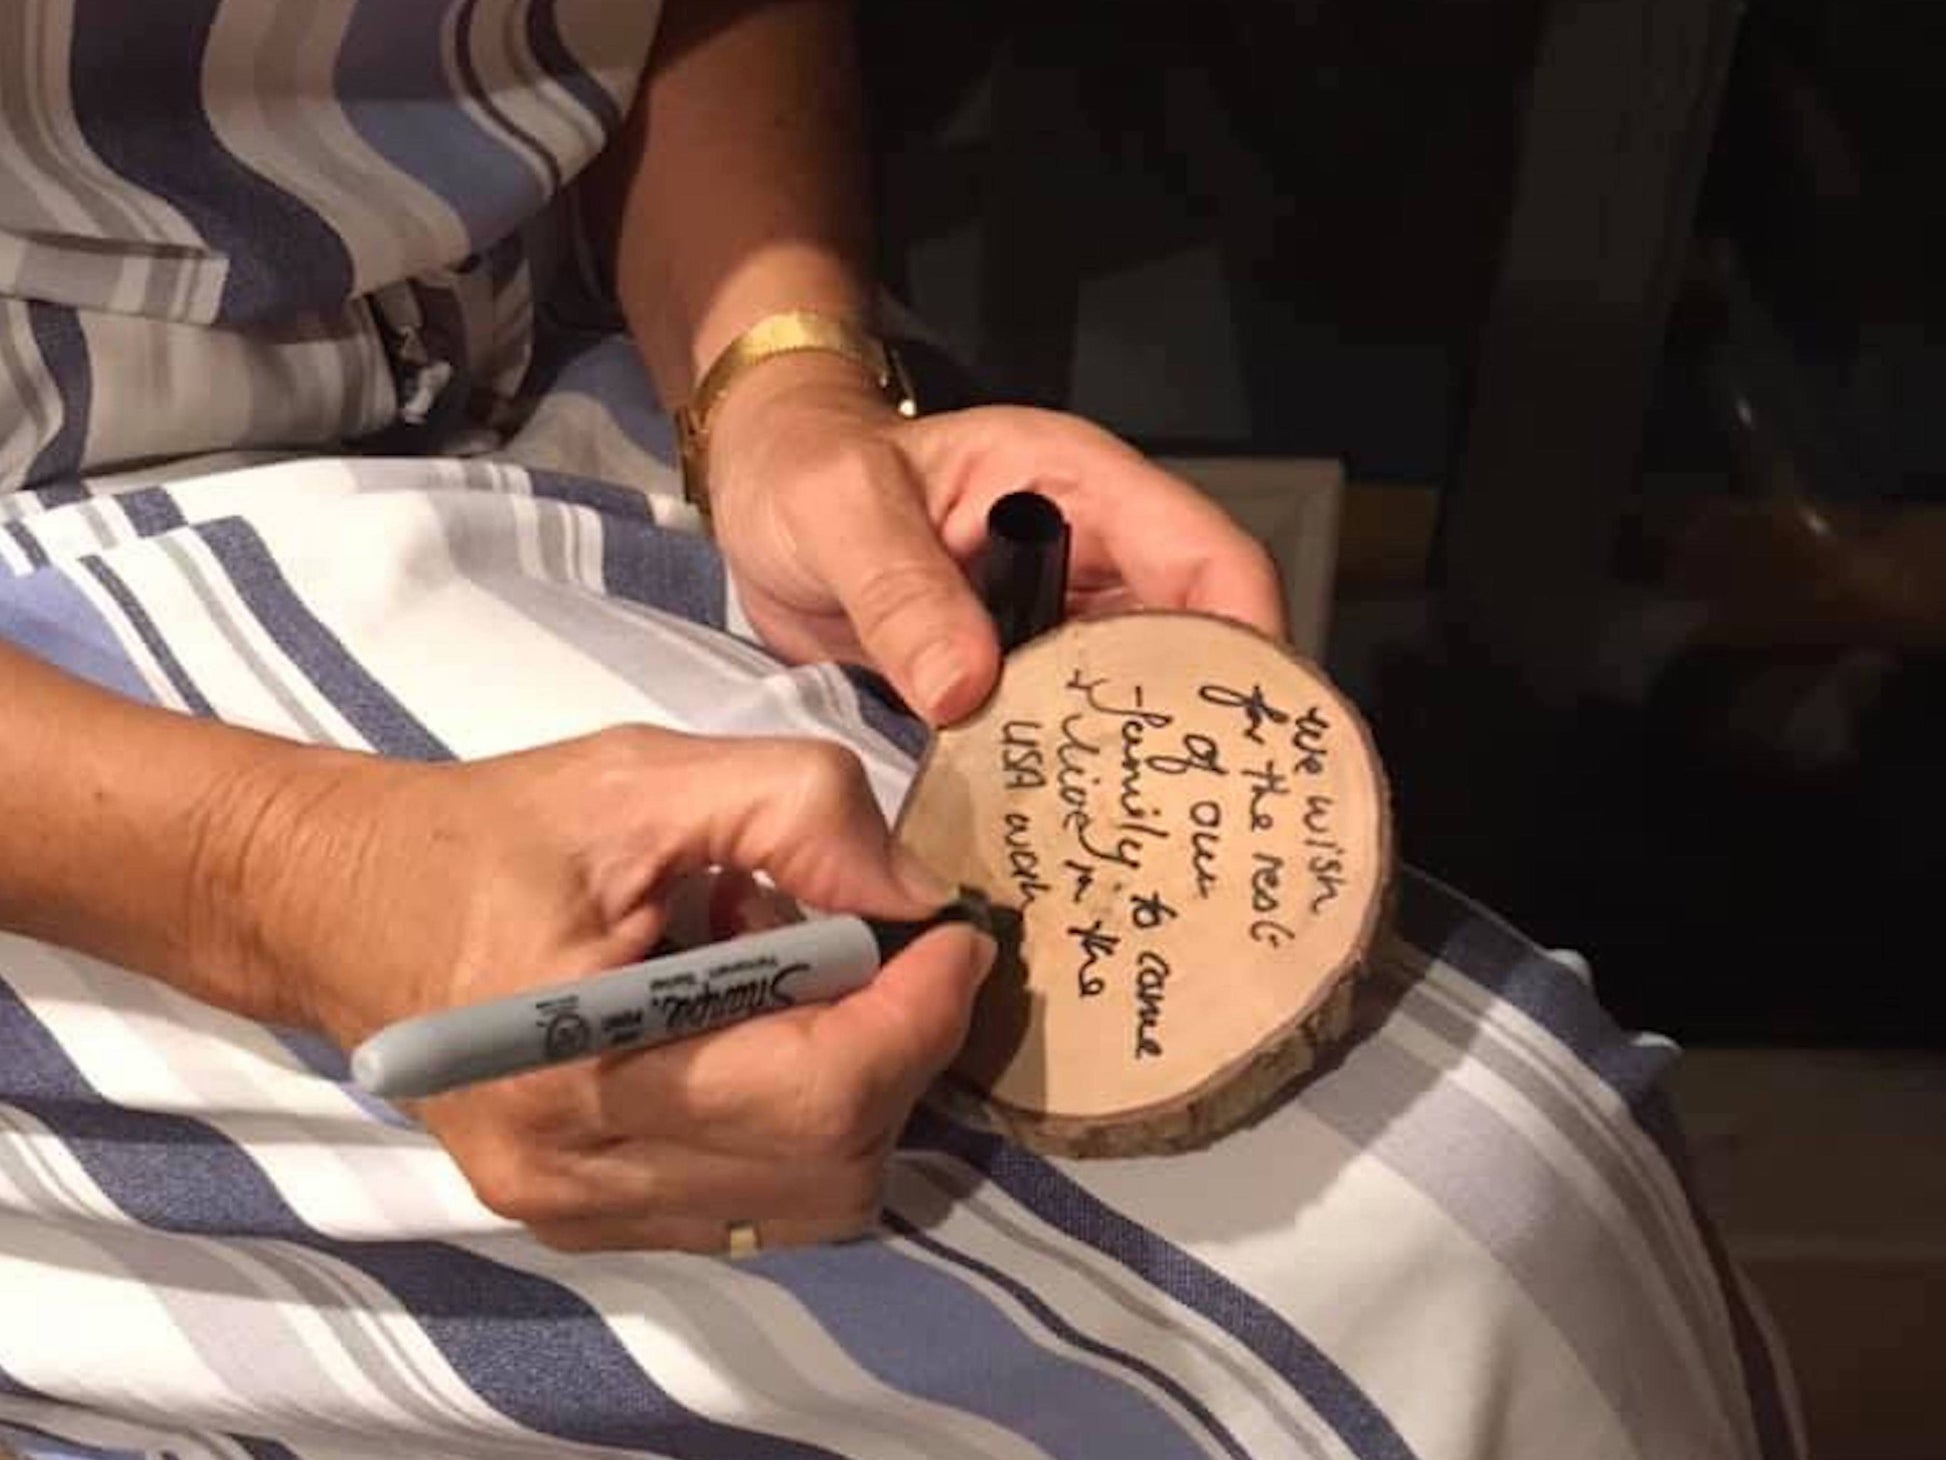 we wish
for the rest
of our
family to come
& live in the
USA with
Sharpie.